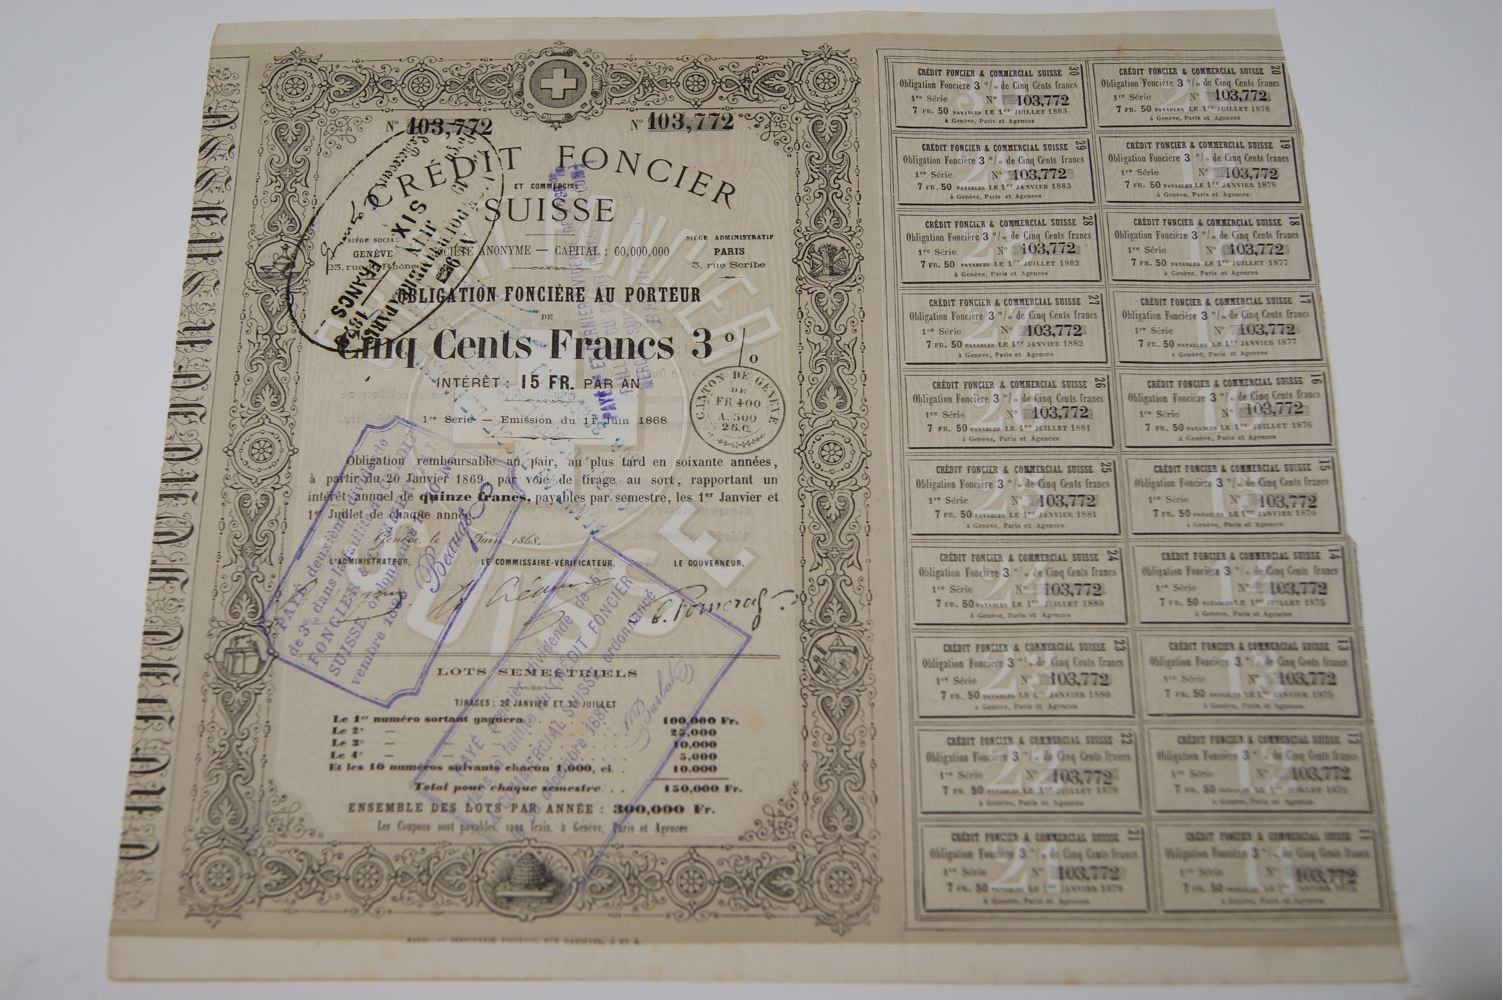 Nº 103,772
Nº 103,772
CRÉDIT FONCIER
ET COMMERCIAL
SUISSE
SIÈGE SOCIAL
GENÈVE
23, rue du Rhône
SOCIÉTÉ ANONYME — CAPITAL : 60,000,000
SIÈGE ADMINISTRATIF
PARIS
3, rue Scribe
OBLIGATION FONCIÈRE AU PORTEUR
DE
Cinq Cents Francs 3 %
INTÉRÊT : 15 FR. PAR AN
1re Série — Emission du 11 Juin 1868
CANTON DE GENÈVE
DE
FR 400
A. 500
25 C.
Obligation remboursable au pair, au plus tard en soixante années,
à partir du 20 Janvier 1869, par voie de tirage au sort, rapportant un
intérêt annuel de quinze francs, payables par semestre, les 1er Janvier et
1er Juillet de chaque année.
Genève, le Juin 1868.
L'ADMINISTRATEUR,
LE COMMISSAIRE-VÉRIFICATEUR,
LE GOUVERNEUR,
LOTS SEMESTRIELS
TIRAGES : 20 JANVIER ET 20 JUILLET
Le 1er numéro sortant gagnera 100,000 Fr.
Le 2e — 25,000
Le 3e — 10,000
Le 4e — 5,000
Et les 10 numéros suivants chacun 1,000, ci . . 10,000
Total pour chaque semestre . . . 150,000 Fr.
ENSEMBLE DES LOTS PAR ANNÉE : 300,000 Fr.
Les Coupons sont payables, sans frais, à Genève, Paris et Agences
SIX
FRANCS
PAYÉ deuxième dividende
de 3% dans la faillite du CRÉDIT
FONCIER &
SUISSE ordonnancé
vembre 1880
PAYÉ dividende de
faillite CRÉDIT FONCIER
COMMERCIAL SUISSE ordonnancé
30
CRÉDIT FONCIER & COMMERCIAL SUISSE
Obligation Foncière 3 % de Cinq Cents francs
1re Série Nº 103,772
7 FR. 50 PAYABLES LE 1er JUILLET 1883
à Genève, Paris et Agences
20
CRÉDIT FONCIER & COMMERCIAL SUISSE
Obligation Foncière 3 % de Cinq Cents francs
1re Série Nº 103,772
7 FR. 50 PAYABLES LE 1er JUILLET 1878
à Genève, Paris et Agences
29
CRÉDIT FONCIER & COMMERCIAL SUISSE
Obligation Foncière 3 % de Cinq Cents francs
1re Série Nº 103,772
7 FR. 50 PAYABLES LE 1er JANVIER 1883
à Genève, Paris et Agences
19
CRÉDIT FONCIER & COMMERCIAL SUISSE
Obligation Foncière 3 % de Cinq Cents francs
1re Série Nº 103,772
7 FR. 50 PAYABLES LE 1er JANVIER 1878
à Genève, Paris et Agences
28
CRÉDIT FONCIER & COMMERCIAL SUISSE
Obligation Foncière 3 % de Cinq Cents francs
1re Série Nº 103,772
7 FR. 50 PAYABLES LE 1er JUILLET 1882
à Genève, Paris et Agences
18
CRÉDIT FONCIER & COMMERCIAL SUISSE
Obligation Foncière 3 % de Cinq Cents francs
1re Série Nº 103,772
7 FR. 50 PAYABLES LE 1er JUILLET 1877
à Genève, Paris et Agences
27
CRÉDIT FONCIER & COMMERCIAL SUISSE
Obligation Foncière 3 % de Cinq Cents francs
1re Série Nº 103,772
7 FR. 50 PAYABLES LE 1er JANVIER 1882
à Genève, Paris et Agences
17
CRÉDIT FONCIER & COMMERCIAL SUISSE
Obligation Foncière 3 % de Cinq Cents francs
1re Série Nº 103,772
7 FR. 50 PAYABLES LE 1er JANVIER 1877
à Genève, Paris et Agences
26
CRÉDIT FONCIER & COMMERCIAL SUISSE
Obligation Foncière 3 % de Cinq Cents francs
1re Série Nº 103,772
7 FR. 50 PAYABLES LE 1er JUILLET 1881
à Genève, Paris et Agences
16
CRÉDIT FONCIER & COMMERCIAL SUISSE
Obligation Foncière 3 % de Cinq Cents francs
1re Série Nº 103,772
7 FR. 50 PAYABLES LE 1er JUILLET 1876
à Genève, Paris et Agences
25
CRÉDIT FONCIER & COMMERCIAL SUISSE
Obligation Foncière 3 % de Cinq Cents francs
1re Série Nº 103,772
7 FR. 50 PAYABLES LE 1er JANVIER 1881
à Genève, Paris et Agences
15
CRÉDIT FONCIER & COMMERCIAL SUISSE
Obligation Foncière 3 % de Cinq Cents francs
1re Série Nº 103,772
7 FR. 50 PAYABLES LE 1er JANVIER 1876
à Genève, Paris et Agences
24
CRÉDIT FONCIER & COMMERCIAL SUISSE
Obligation Foncière 3 % de Cinq Cents francs
1re Série Nº 103,772
7 FR. 50 PAYABLES LE 1er JUILLET 1880
à Genève, Paris et Agences
14
CRÉDIT FONCIER & COMMERCIAL SUISSE
Obligation Foncière 3 % de Cinq Cents francs
1re Série Nº 103,772
7 FR. 50 PAYABLES LE 1er JUILLET 1875
à Genève, Paris et Agences
23
CRÉDIT FONCIER & COMMERCIAL SUISSE
Obligation Foncière 3 % de Cinq Cents francs
1re Série Nº 103,772
7 FR. 50 PAYABLES LE 1er JANVIER 1880
à Genève, Paris et Agences
13
CRÉDIT FONCIER & COMMERCIAL SUISSE
Obligation Foncière 3 % de Cinq Cents francs
1re Série Nº 103,772
7 FR. 50 PAYABLES LE 1er JANVIER 1875
à Genève, Paris et Agences
22
CRÉDIT FONCIER & COMMERCIAL SUISSE
Obligation Foncière 3 % de Cinq Cents francs
1re Série Nº 103,772
7 FR. 50 PAYABLES LE 1er JUILLET 1879
à Genève, Paris et Agences
12
CRÉDIT FONCIER & COMMERCIAL SUISSE
Obligation Foncière 3 % de Cinq Cents francs
1re Série Nº 103,772
7 FR. 50 PAYABLES LE 1er JUILLET
à Genève, Paris et Agences
21
CRÉDIT FONCIER & COMMERCIAL SUISSE
Obligation Foncière 3 % de Cinq Cents francs
1re Série Nº 103,772
7 FR. 50 PAYABLES LE 1er JANVIER 1879
à Genève, Paris et Agences
11
CRÉDIT FONCIER & COMMERCIAL SUISSE
Obligation Foncière 3 % de Cinq Cents francs
1re Série Nº 103,772
7 FR. 50 PAYABLES LE 1er JANVIER
à Genève, Paris et Agences